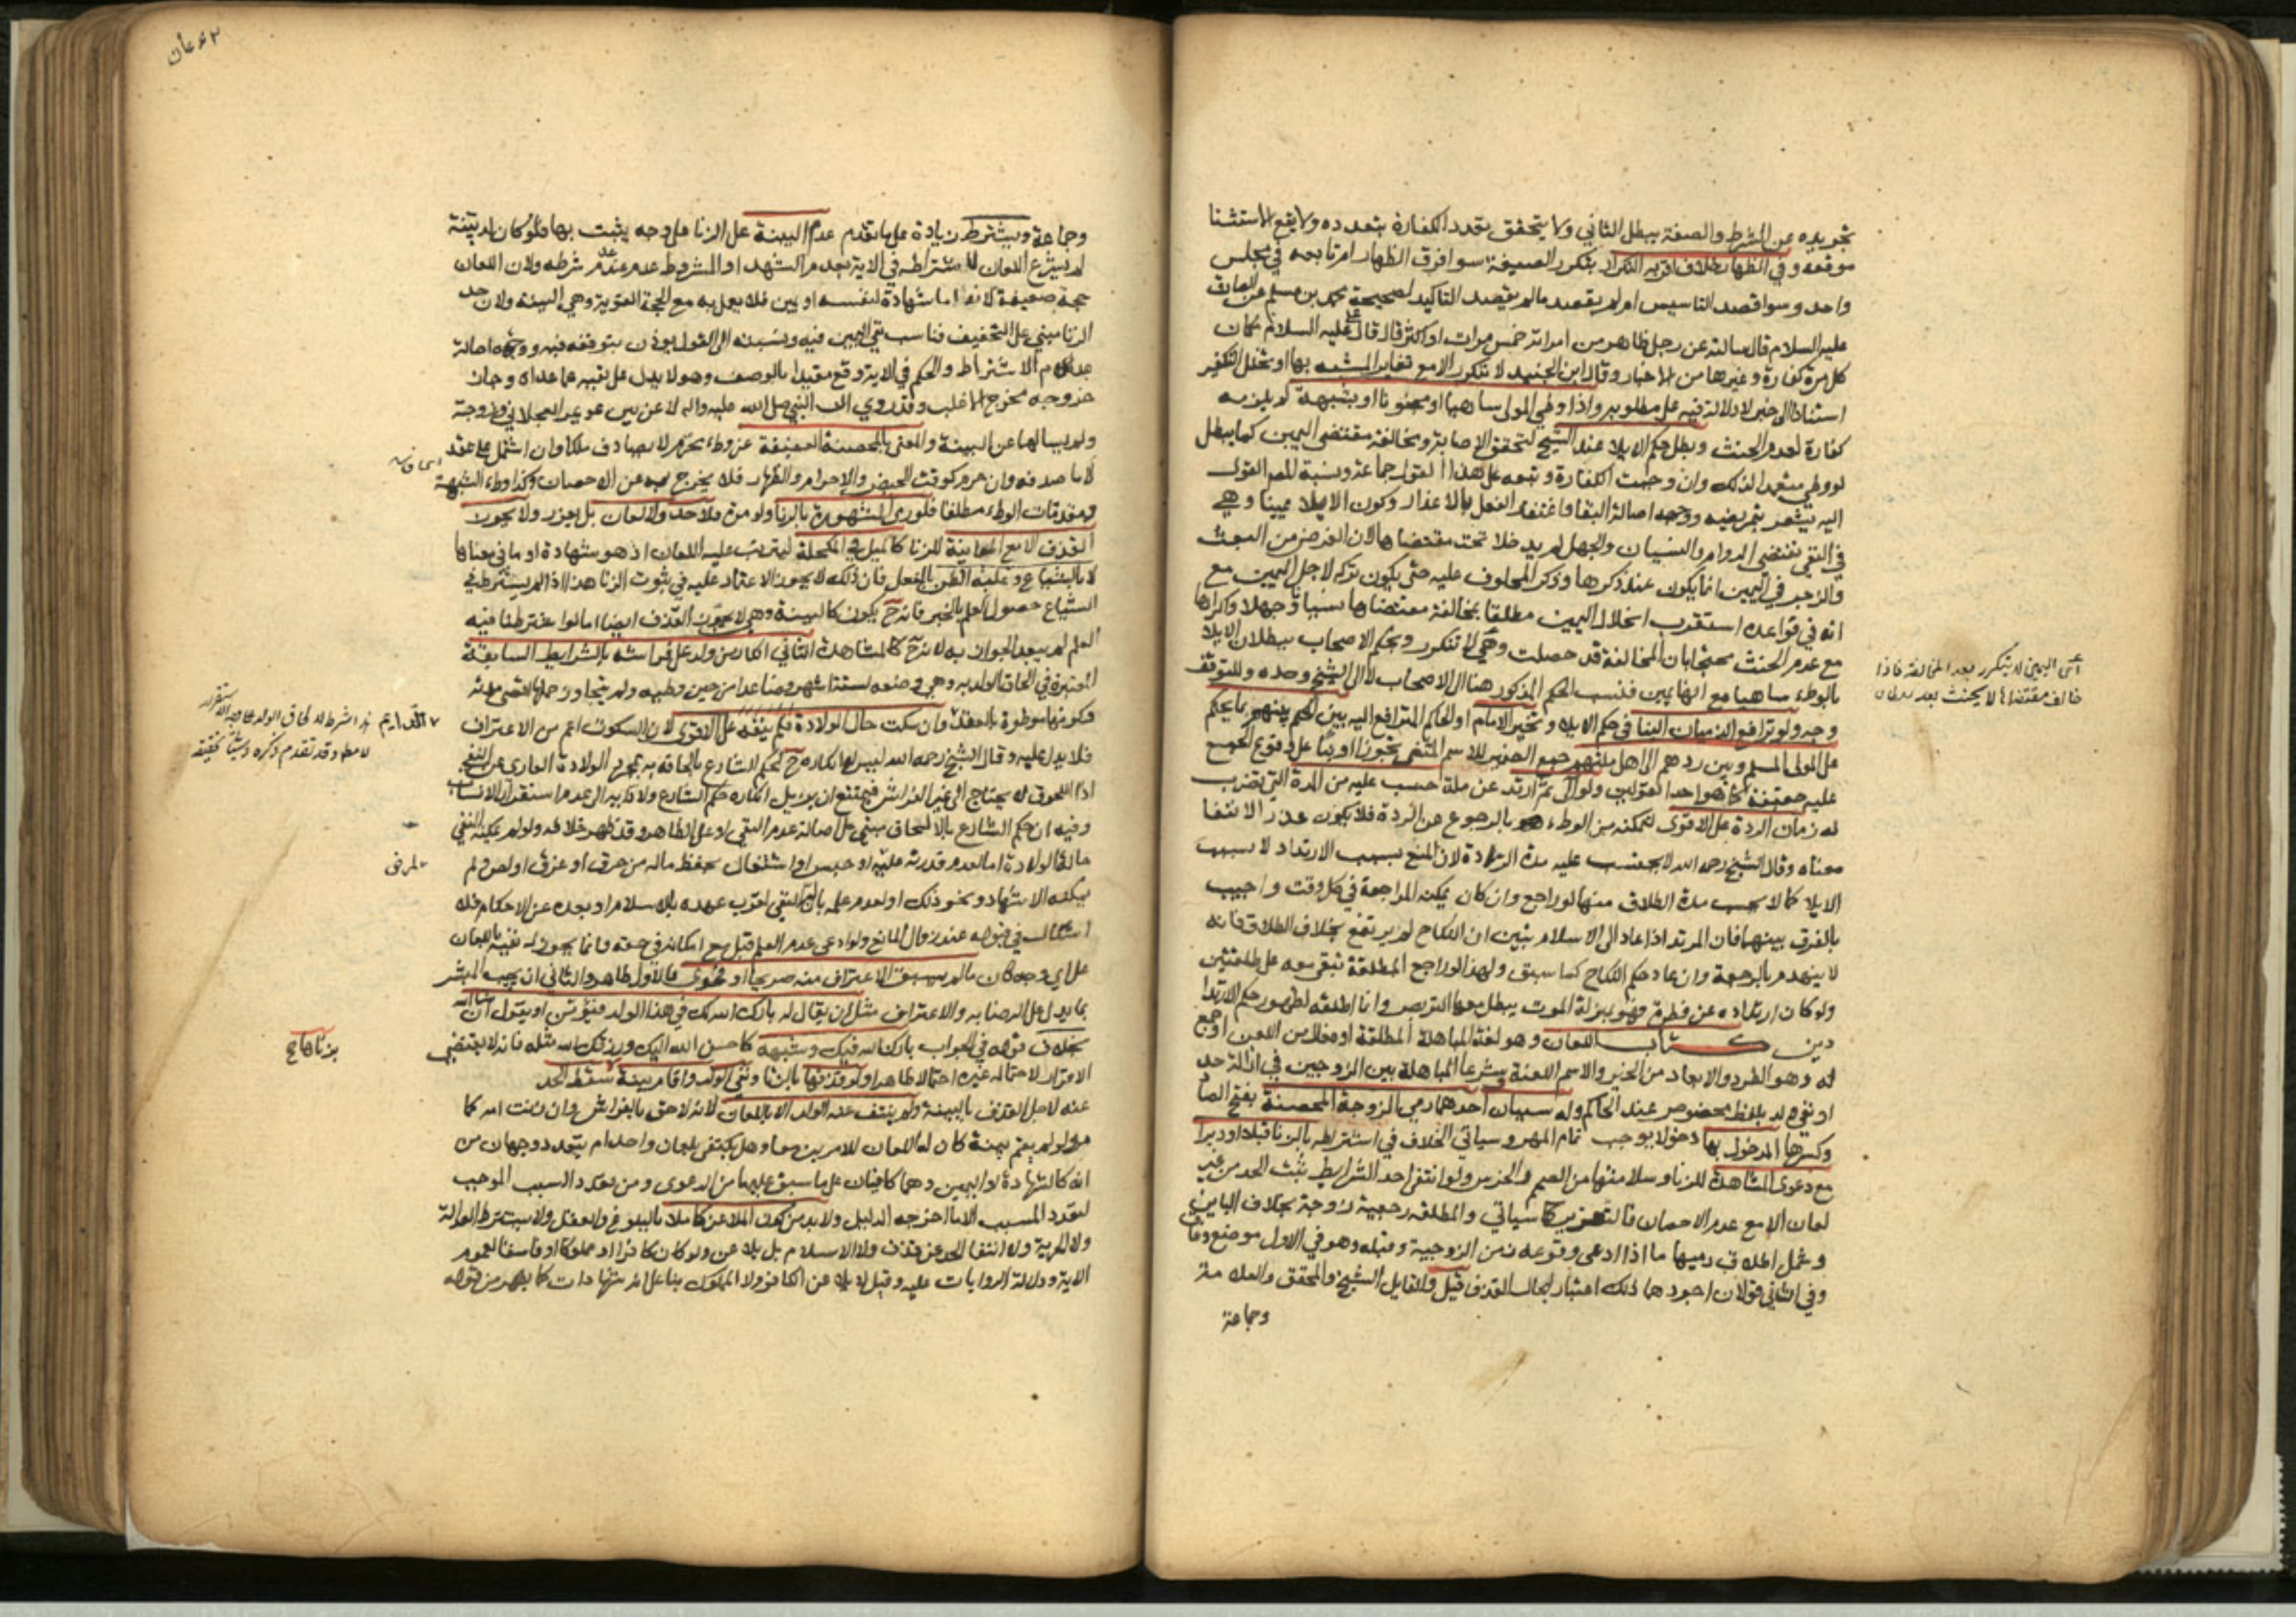 تجويده عن الشرط والصفة يبطل الثاني ولا يتحقق تعدد الكفارة بتعدده ولا يقع الاستثنا
موقعه وفي الظهار خلاف اقربه التكرار بتكرر الصيغة سوا فرق الظهار ام تابعه في مجلس
واحد وسوا قصد التاسيس ام لم يقصد ما لم يقصد التاكيد لصحيحة محمد بن مسلم عن الصادق
عليه السلام قال سالته عن رجل ظاهر من امراته خمس مرات او اكثر قال قال علي عليه السلام مكان
كل مرة كفارة وغيرها من الاخبار وقال ابن الجنيد لا تتكرر الا مع تغاير المشبه بها او تخلل التكفير
استنادا الى خبر لا دلالة فيه على مطلوبه واذا وطي المولى ساهيا او مجنونا او بشبهة لم يلزمه
كفارة لعدم الحنث وبطل حكم الايلا عند الشيخ لتحقق الاصابة ومخالفة مقتضى اليمين كما يبطل
لو وطي متعمدا لذلك وان وجبت الكفارة وتبعه على هذا القول جماعة ونسبة المصـ القول
اليه يشعر بتمريضه ووجهه اصالة البقا واغتفار الفعل بالاعذار وكون الايلا يمينا وهي
في النفي تقتضي الدوام والنسيان والجهل لم يدخلا تحت مقتضاها لان الغرض من البعث
والزجر في اليمين انما يكون عند ذكرها وذكر المحلوف عليه حتى يكون تركه لاجل اليمين مع
انه في قواعده استقرب انحلال اليمين مطلقا بمخالفة مقتضاها نسيانا وجهلا واكراها
مع عدم الحنث محتجا بان المخالفة قد حصلت وهي لا تتكرر وبحكم الاصحاب ببطلان الايلا
بالوطء ساهيا مع انها يمين فنسب الحكم المذكور هنا الى الاصحاب لا الى الشيخ وحده وللتوقف
وجه ولو ترافع الذميان الينا في حكم الايلا تخير الامام او الحاكم المترافع اليه بين الحكم بينهم بما يحكم
على المولى المسلم وبين ردهم الى اهل ملتهم جمع الضمير للاسم المثنى تجوزا او بناء على وقوع الجمع
عليه حقيقة كما هو احد القولين ولو آلى ثم ارتد عن ملة احتسب عليه من المدة التي تضرب
له زمان الردة على الاقوى لتمكنه من الوطء بالرجوع عن الردة فلا يكون عذرا لانتفا
معناه وقال الشيخ رحمه الله لا يحتسب عليه مدة الردة لان المنع بسبب الارتداد لا بسبب
الايلا كما لا يحتسب مدة الطلاق منها لو راجع وان كان يمكنه المراجعة في كل وقت واجيب
بالفرق بينهما فان المرتد اذا عاد الى الاسلام تبين ان النكاح لم يرتفع بخلاف الطلاق فانه
لا ينهدم بالرجعة وان عاد حكم النكاح كما سبق ولهذا لو راجع المطلقة تبقى معه على طلقتين
ولو كان ارتداده عن فطرة فهو بمنزلة الموت يبطل معها التربص وانما اطلقه لظهور حكم الارتدا
دين كتاب اللعان وهو لغة المباهلة المطلقة او فعال من اللعن او جمع
له وهو الطرد والابعاد من الخير والاسم اللعنة وشرعا المباهلة بين الزوجين في ازالة حد
او نفي ولد بلفظ مخصوص عند الحاكم وله سببان احدهما رمي الزوجة المحصنة بفتح الصا
وكسرها المدخول بها دخولا يوجب تمام المهر وسياتي الخلاف في اشتراطه بالزنا قبلا او دبرا
مع دعوى المشاهدة للزنا وسلامتها من الصمم والخرس ولو انتفى احد الشرايط يثبت الحد من غير
لعان الا مع عدم الاحصان فالتعزير كما سياتي والمطلقة رجعية زوجة بخلاف الباين
وشمل اطلاق رميها ما اذا ادعى وقوعه زمن الزوجية وقبله وهو في الاول موضع وفاق
وفي الثاني قولان اجودهما ذلك اعتبارا بحال القذف قيل والقايل الشيخ والمحقق والعلامة
وجماعة
اى اليمين لا يتكرر بعد المخالفة فاذا
خالف مقتضاها لا يحنث بعد
وجماعة ويشترط زيادة على ما تقدم عدم البينة على الزنا على وجه يثبت بها فلو كان له بينة
لم يشرع اللعان لاشتراطه في الاية بعدم الشهدا والمشروط عدم عند عدم شرطه ولان اللعان
حجة ضعيفة لانه اما شهادة لنفسه او يمين فلا يعمل به مع الحجة القوية وهي البينة ولان حد
الزنا مبني على التخفيف فناسب نفي اليمين فيه ونسبته الى القول يوذن بتوقفه فيه ووجهه اصالة
عدم الاشتراط والحكم في الاية وقع مقيدا بالوصف وهو لا يدل على نفيه عما عداه وجاز
خروجه مخرج الاغلب وقد روي ان النبي صلى الله عليه واله لاعن بين عويمر العجلاني وزوجته
ولم يسالهما عن البينة والمعني بالمحصنة العفيفة عن وطء محرم لا يصادف ملكا وان اشتمل على عقد
لا ما صادفه وان حرم كوقت الحيض والاحرام والظهار فلا يخرج به عن الاحصان وكذا وطء الشبهة
ومقدمات الوطء مطلقا فلو رمى المشهورة بالزنا ولو مرة فلا حد ولا لعان بل يعزر ولا يجوز
القذف الا مع المعاينة للزنا كالميل في المكحلة ليترتب عليه اللعان اذ هو شهادة او في معناها
لا بالشياع وغلبة الظن بالفعل فان ذلك لا يجوز الاعتماد عليه في ثبوت الزنا هذا اذا لم يشترط في
الشياع حصول العلم بالخبر فانه ح يكون كالبينة وهي لا تجوز القذف ايضا اما لو اشترطنا فيه
العلم لم يبعد الجواز به لانه ح كالمشاهدة الثاني انكار من ولد على فراشه بالشرايط السابقة
المعتبرة في الحاق الولد به وهي وضعه لستة اشهر فصاعدا من حين وطيه ولم يتجاوز حملها اقصى مدته
وكونها موطوة بالعقد وان سكت حال الولادة فلم ينفه على الاقوى لان السكوت اعم من الاعتراف
فلا يدل عليه وقال الشيخ رحمه الله ليس له انكاره ح لحكم الشارع بالحاقه به بمجرد الولادة العاري عن النفي
اذ اللحوق لا يحتاج الى غير الفراش فيمتنع ان يزيل انكاره حكم الشارع ولادى به الى عدم استقرار الانساب
وفيه ان حكم الشارع بالالحاق مبني على اصالة عدم النفي او على الظاهر وقد ظهر خلافه ولو لم يمكنه النفي
حالة الولادة اما لعدم قدرته عليه او حبس او اشتغال بحفظ ماله من حرق او غرق او لص ولم
يمكنه الاشهاد ونحو ذلك او لعدم علمه بان له النفي لقرب عهده بالاسلام او بعده عن الاحكام فلا
اشكال في قبوله عند زوال المانع ولو ادعى عدم العلم قبل مع امكانه في حقه وانما يجوز له نفيه باللعان
على اي وجه كان ما لم يسبق الاعتراف منه صريحا او فحوى فالاول ظاهر والثاني ان يجيب المبشر
بما يدل على الرضا به والاعتراف مثل ان يقال له بارك الله لك في هذا الولد فيؤمن او يقول ان شا الله
بخلاف قوله في الجواب بارك الله فيك وشبهه كاحسن الله اليك ورزقك الله مثله فانه لا يقتضي
الاقرار لاحتماله غيره احتمالا ظاهرا ولو قذفها بالزنا ونفى الولد واقام بينة سقط الحد
عنه لاجل القذف بالبينة ولم ينتف عنه الولد الا باللعان لانه لاحق بالفراش وان زنت امه كما
مر ولو لم يقم بينة كان له اللعان للامرين معا وهل يكتفى بلعان واحد ام يتعدد وجهان من
انه كالشهادة او اليمين وهما كافيان على ما سبق عليهما من الدعوى ومن تعدد السبب الموجب
لتعدد المسبب الا ما اخرجه الدليل ولا بد من كون الملاعن كاملا بالبلوغ والعقل ولا يشترط العدالة
ولا الحرية ولا انتفا الحد عن قذف ولا الاسلام بل يلاعن ولو كان كافرا او مملوكا او فاسقا لعموم
الاية ودلالة الروايات عليه وقيل لا يلاعن الكافر ولا المملوك بناء على انه شهادات كما يظهر من قوله